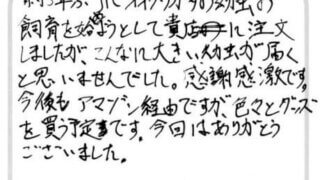 飼育を始めようとして貴店に注文
しましたが、こんなに大きい幼虫が届く
と思いませんでした。感謝感激です。
今後もアマゾン経由ですが、色々とグッズ
を買う予定です。今回はありがとう
ございました。